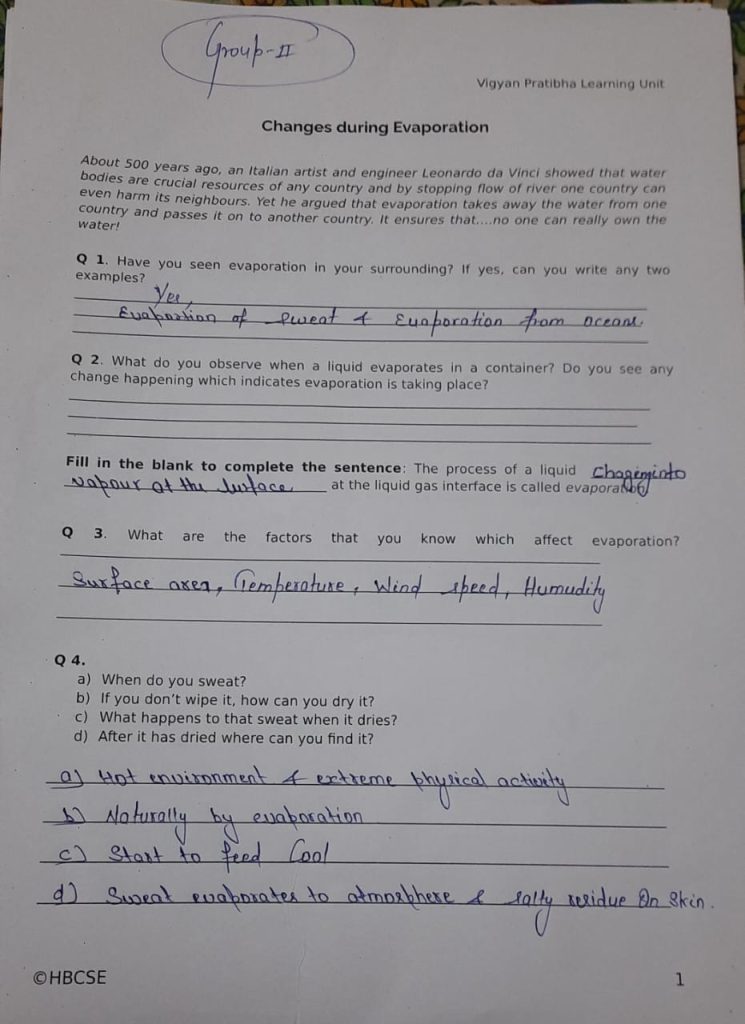 Group-II
Vigyan Pratibha Learning Unit
Changes during Evaporation
About 500 years ago, an Italian artist and engineer Leonardo da Vinci showed that water
bodies are crucial resources of any country and by stopping flow of river one country can
even harm its neighbours. Yet he argued that evaporation takes away the water from one
country and passes it on to another country. It ensures that....no one can really own the
water!
Q 1. Have you seen evaporation in your surrounding? If yes, can you write any two
examples?
Yes,
Evaportion of sweat & Evaporation from oceans.
Q 2. What do you observe when a liquid evaporates in a container? Do you see any
change happening which indicates evaporation is taking place?
Fill in the blank to complete the sentence: The process of a liquid Chageninto
vapour at the surface at the liquid gas interface is called evaporation
Q 3. What are the factors that you know which affect evaporation?
Surface area, Temperature, Wind speed, Humudity
Q 4.
a) When do you sweat?
b) If you don't wipe it, how can you dry it?
c) What happens to that sweat when it dries?
d) After it has dried where can you find it?
a) Hot environment & extreme physical activity
b) Naturally by evaporation
c) Start to feed Cool
d) Sweat evaporates to atmosphere & salty residue On Skin.
©HBCSE
1